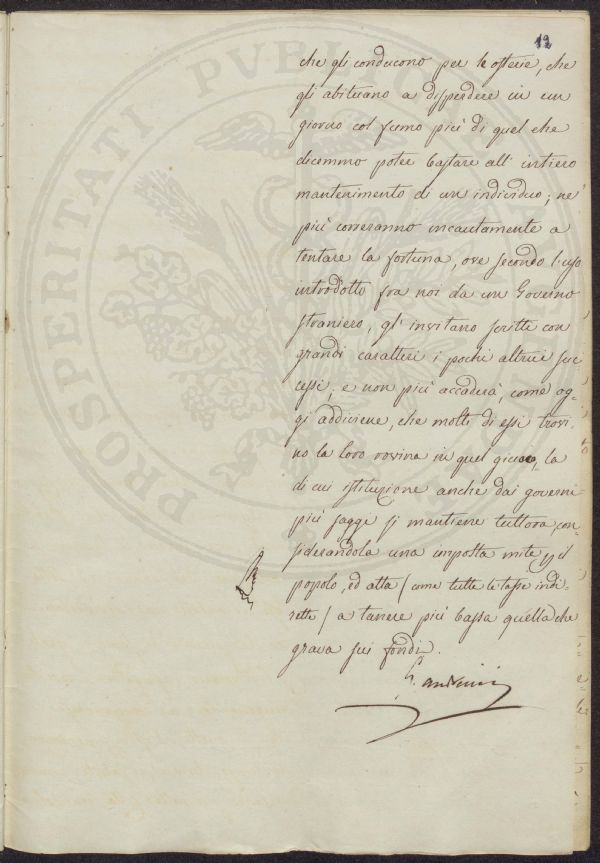 12
che gli conducono per le osterie, che
gli abituano a disperdere in un
giorno col fumo più di quel che
dicemmo poter bastare all' intiero
mantenimento di un individuo; ne'
più correranno incautamente a
tentare la fortuna, ove secondo l'uso
introdotto fra noi da un Governo
straniero, gl' invitano scritti con
grandi caratteri i pochi altrui suc-
cessi; e non più accaderà, come og-
gi addiviene, che molti di essi trovi-
no la loro rovina in quel giuoco, la
di cui istituzione anche dai governi
più saggi si mantiene tuttora, con-
siderandola una imposta mite pil
popolo, ed atta / come tutte le tasse indi-
rette / a tenere più bassa quella che
grava sui fondi.
PROSPERITATI PVBLICAE